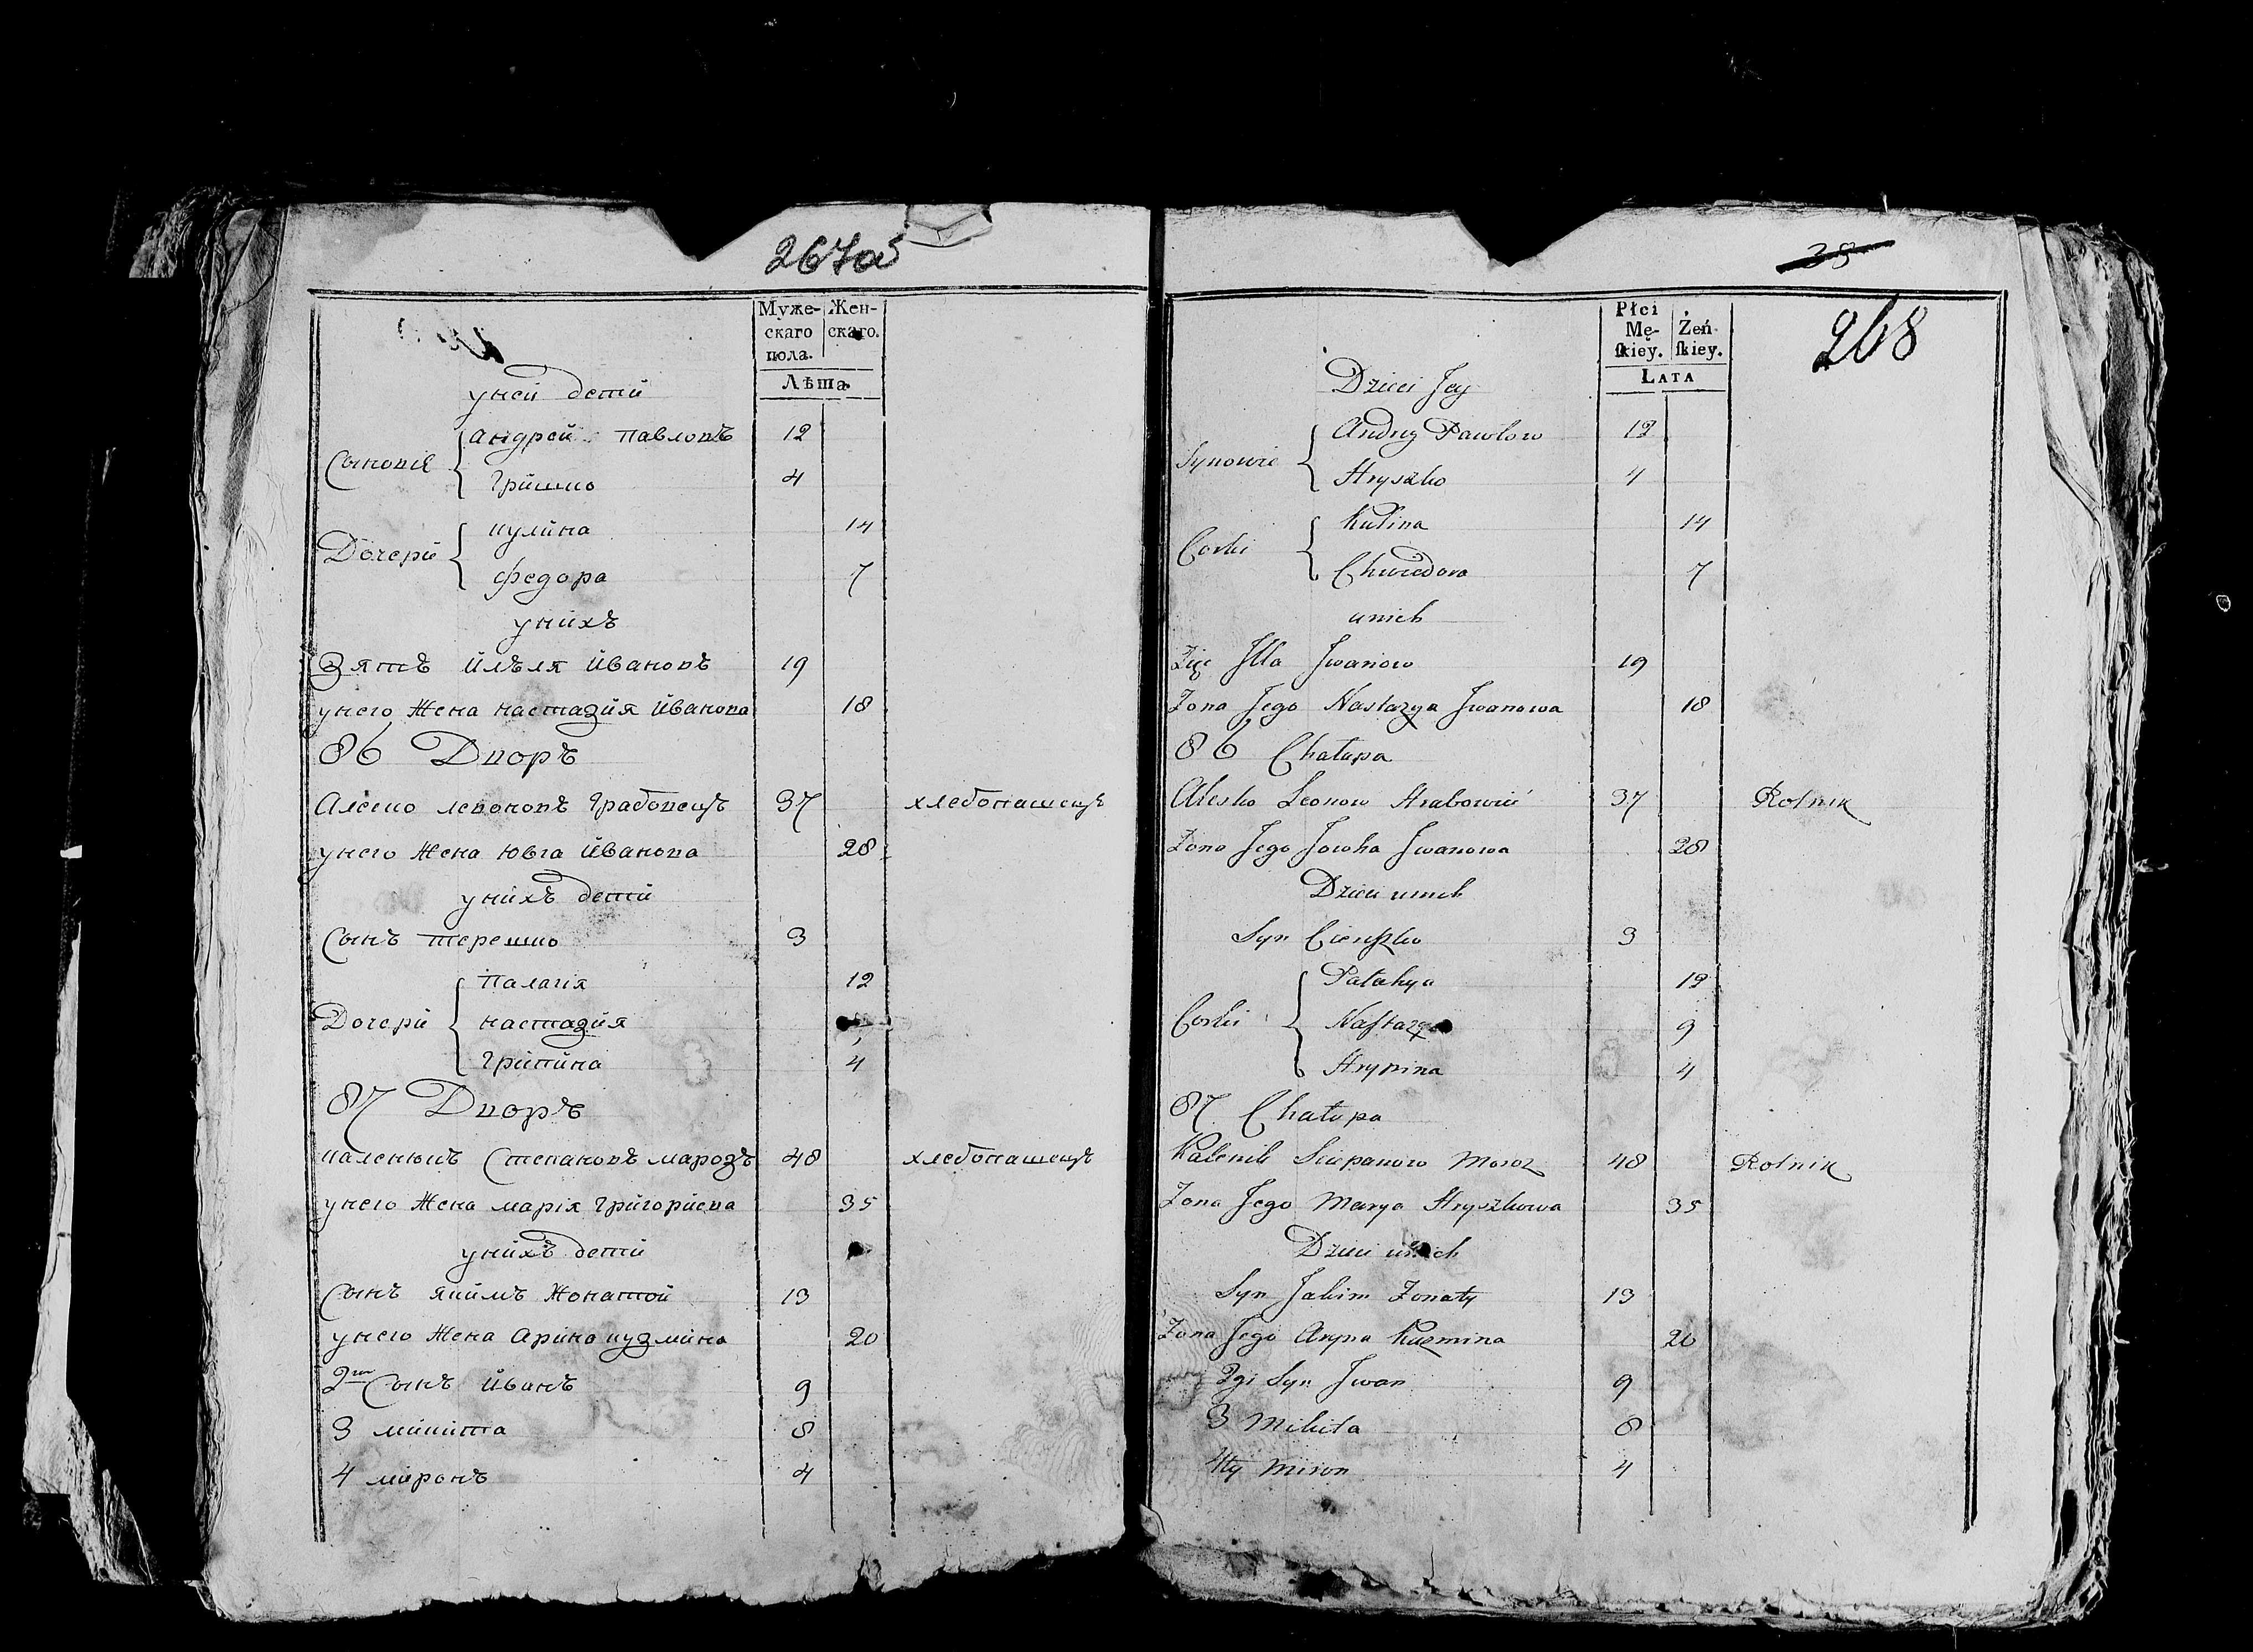 267об
Муже-
скаго
пола.
Жен-
скаго.
Лѣта
уней детй
Сыновія
Андрей павловъ 12
Грйшко 4
Дочерй
кулйна 14
федора 7
унйхъ
Зятъ йлъля йвановъ 19
унего жена настазйя йванова 18
86 Дворъ
Алеско левоновъ Грабовецъ 37 хлебопашецъ
унего жена ювга йванова 28
унйхъ детй
Сынъ терешко 3
Дочерй
палагія 12
настазйя
Грйпйна 4
87 Дворъ
каленикъ Степановъ марозъ 48 хлебопашецъ
унего жена марія Грйгорйева 35
унйхъ детй
Сынъ якймъ жонатой 13
унего жена Арйна кузмйна 20
2гой Сынъ йванъ 9
3 мйкйта 8
4 мйронъ 4
38
268
Płci
Mę-
skiey.
Żeń-
skiey.
Lata
Dzieci Jey
Synowie
Andrzy Pawłow 12
Hryszko 4
Corki
Kulina 14
Chwiedora 7
unich
Zięć Illa Iwanow 19
Zona Jego Nastazya Iwanowa 18
86 Chałupa
Alesko Leonow Hrabowiec 37 Rolnik
Zona Jego Jowha Iwanowa 28
Dzieci unich
Syn Cieraszko 3
Corki
Pałahya 12
Nastazya 9
Hrypina 4
87 Chałupa
Kalenik Sciepanow Moroz 48 Rolnik
Zona Jego Marya Hryszkowa 35
Dzieci unich
Syn Jakim Zonaty 13
Zona Jego Aryna Kuzmina 20
2gi Syn Iwan 9
3 Mikita 8
4ty Miron 4